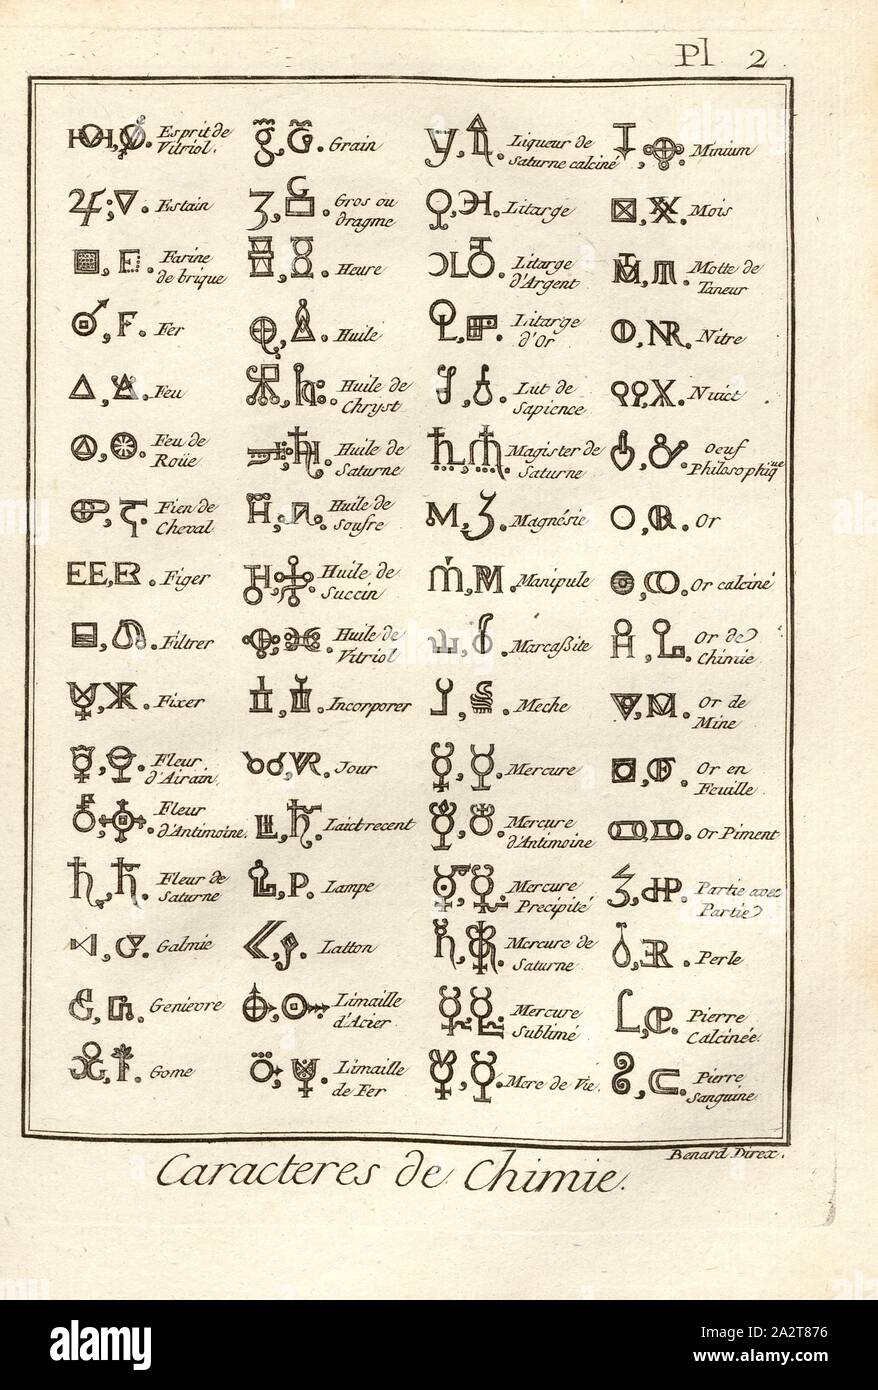 Pl. 2.
Esprit de
Vitriol.
Estain
Farine
de brique
Fer
Feu
Feu de
Roüe
Fien de
Cheval
Figer
Filtrer
Fixer
Fleur
d'Airain.
Fleur
d'Antimoine.
Fleur de
Saturne
Galmie
Genievre
Gome
Grain
Gros ou
dragme
Heure
Huile
Huile de
Chryst
Huile de
Saturne
Huile de
Soufre
Huile de
Succin
Huile de
Vitriol
Incorporer
Jour
Laict recent
Lampe
Latton
Limaille
d'Acier
Limaille
de Fer
Liqueur de
Saturne calciné
Litarge
Litarge
d'Argent
Litarge
d'Or
Lut de
Sapience
Magister de
Saturne
Magnésie
Manipule
Marcaßite
Meche
Mercure
Mercure
d'Antimoine
Mercure
Precipité
Mercure de
Saturne
Mercure
Sublimé
Mere de Vie.
Minium
Mois
Motte de
Taneur
Nitre
Nuict
Oeuf
Philosophique
Or
Or calciné
Or de
Chimie
Or de
Mine
Or en
Feuille
Or Piment
Partie avec
Partie
Perle
Pierre
Calcinée.
Pierre
Sanguine
Benard Direx.
Caracteres de Chimie.
alamy
Image ID: 2A2T876
www.alamy.com